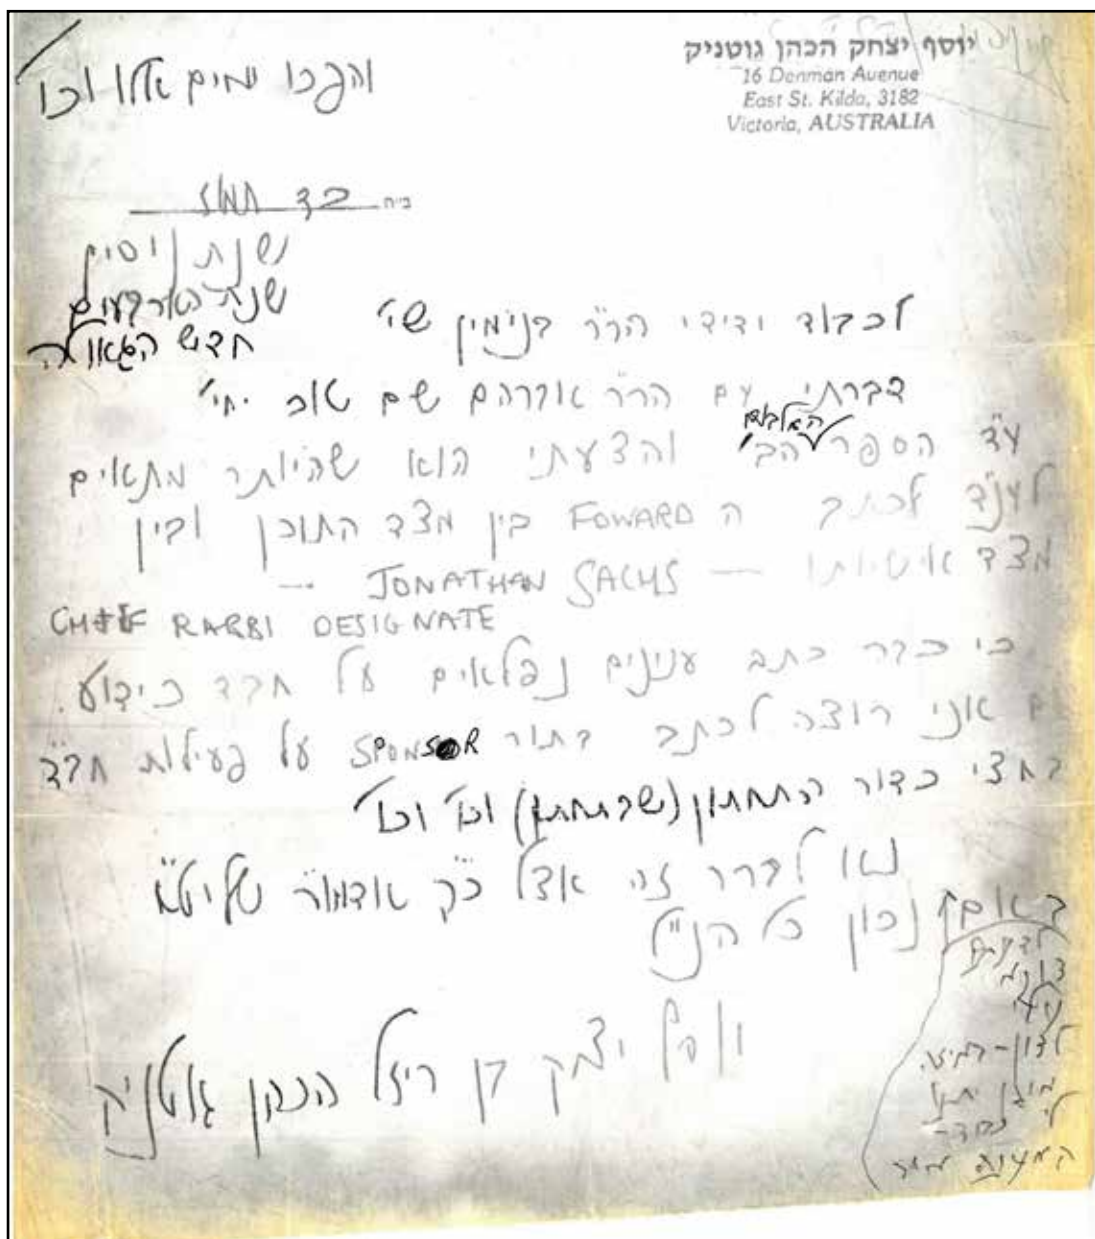 יוסף יצחק הכהן גוטניק
16 Denman Avenue
East St. Kilda, 3182
Victoria, AUSTRALIA
והפכו ימים אלו וכו'
ב"ה כד תמוז
שנת ניסים
שנת הארבעים
חדש הגאולה
לכבוד ידידי הר"ר בנימין שי'
דברתי עם הר"ר אברהם שם טוב יחי'
ע"ד הספר האלבום הב' והצעתי הוא שהיותר מתאים
לענ"ד לכתב ה FOWARD בין מצד התוכן ובין
מצד אישיותו — JONATHAN SACHS —
CHIEF RABBI DESIGNATE
כי כבר כתב ענינים נפלאים על חבד כידוע.
אני רוצה לכתב בתור SPONSOR על פעילות חב"ד
בחצי כדור התחתון (שבתחתון) וכו' וכו'
נא לברר זה אצל כ"ק אדמו"ר שליט"א
באם נכון כל הנ"ל
יוסף יצחק בן רייזל הכהן גוטניק
לדעתם